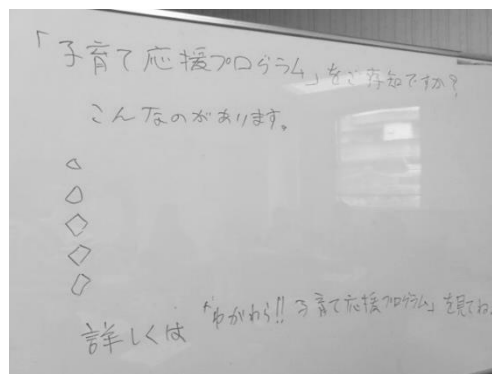 「子育て応援プログラム」をご存知ですか?
こんなのがあります。
詳しくは「わがわら!!子育て応援プログラム」を見てね。